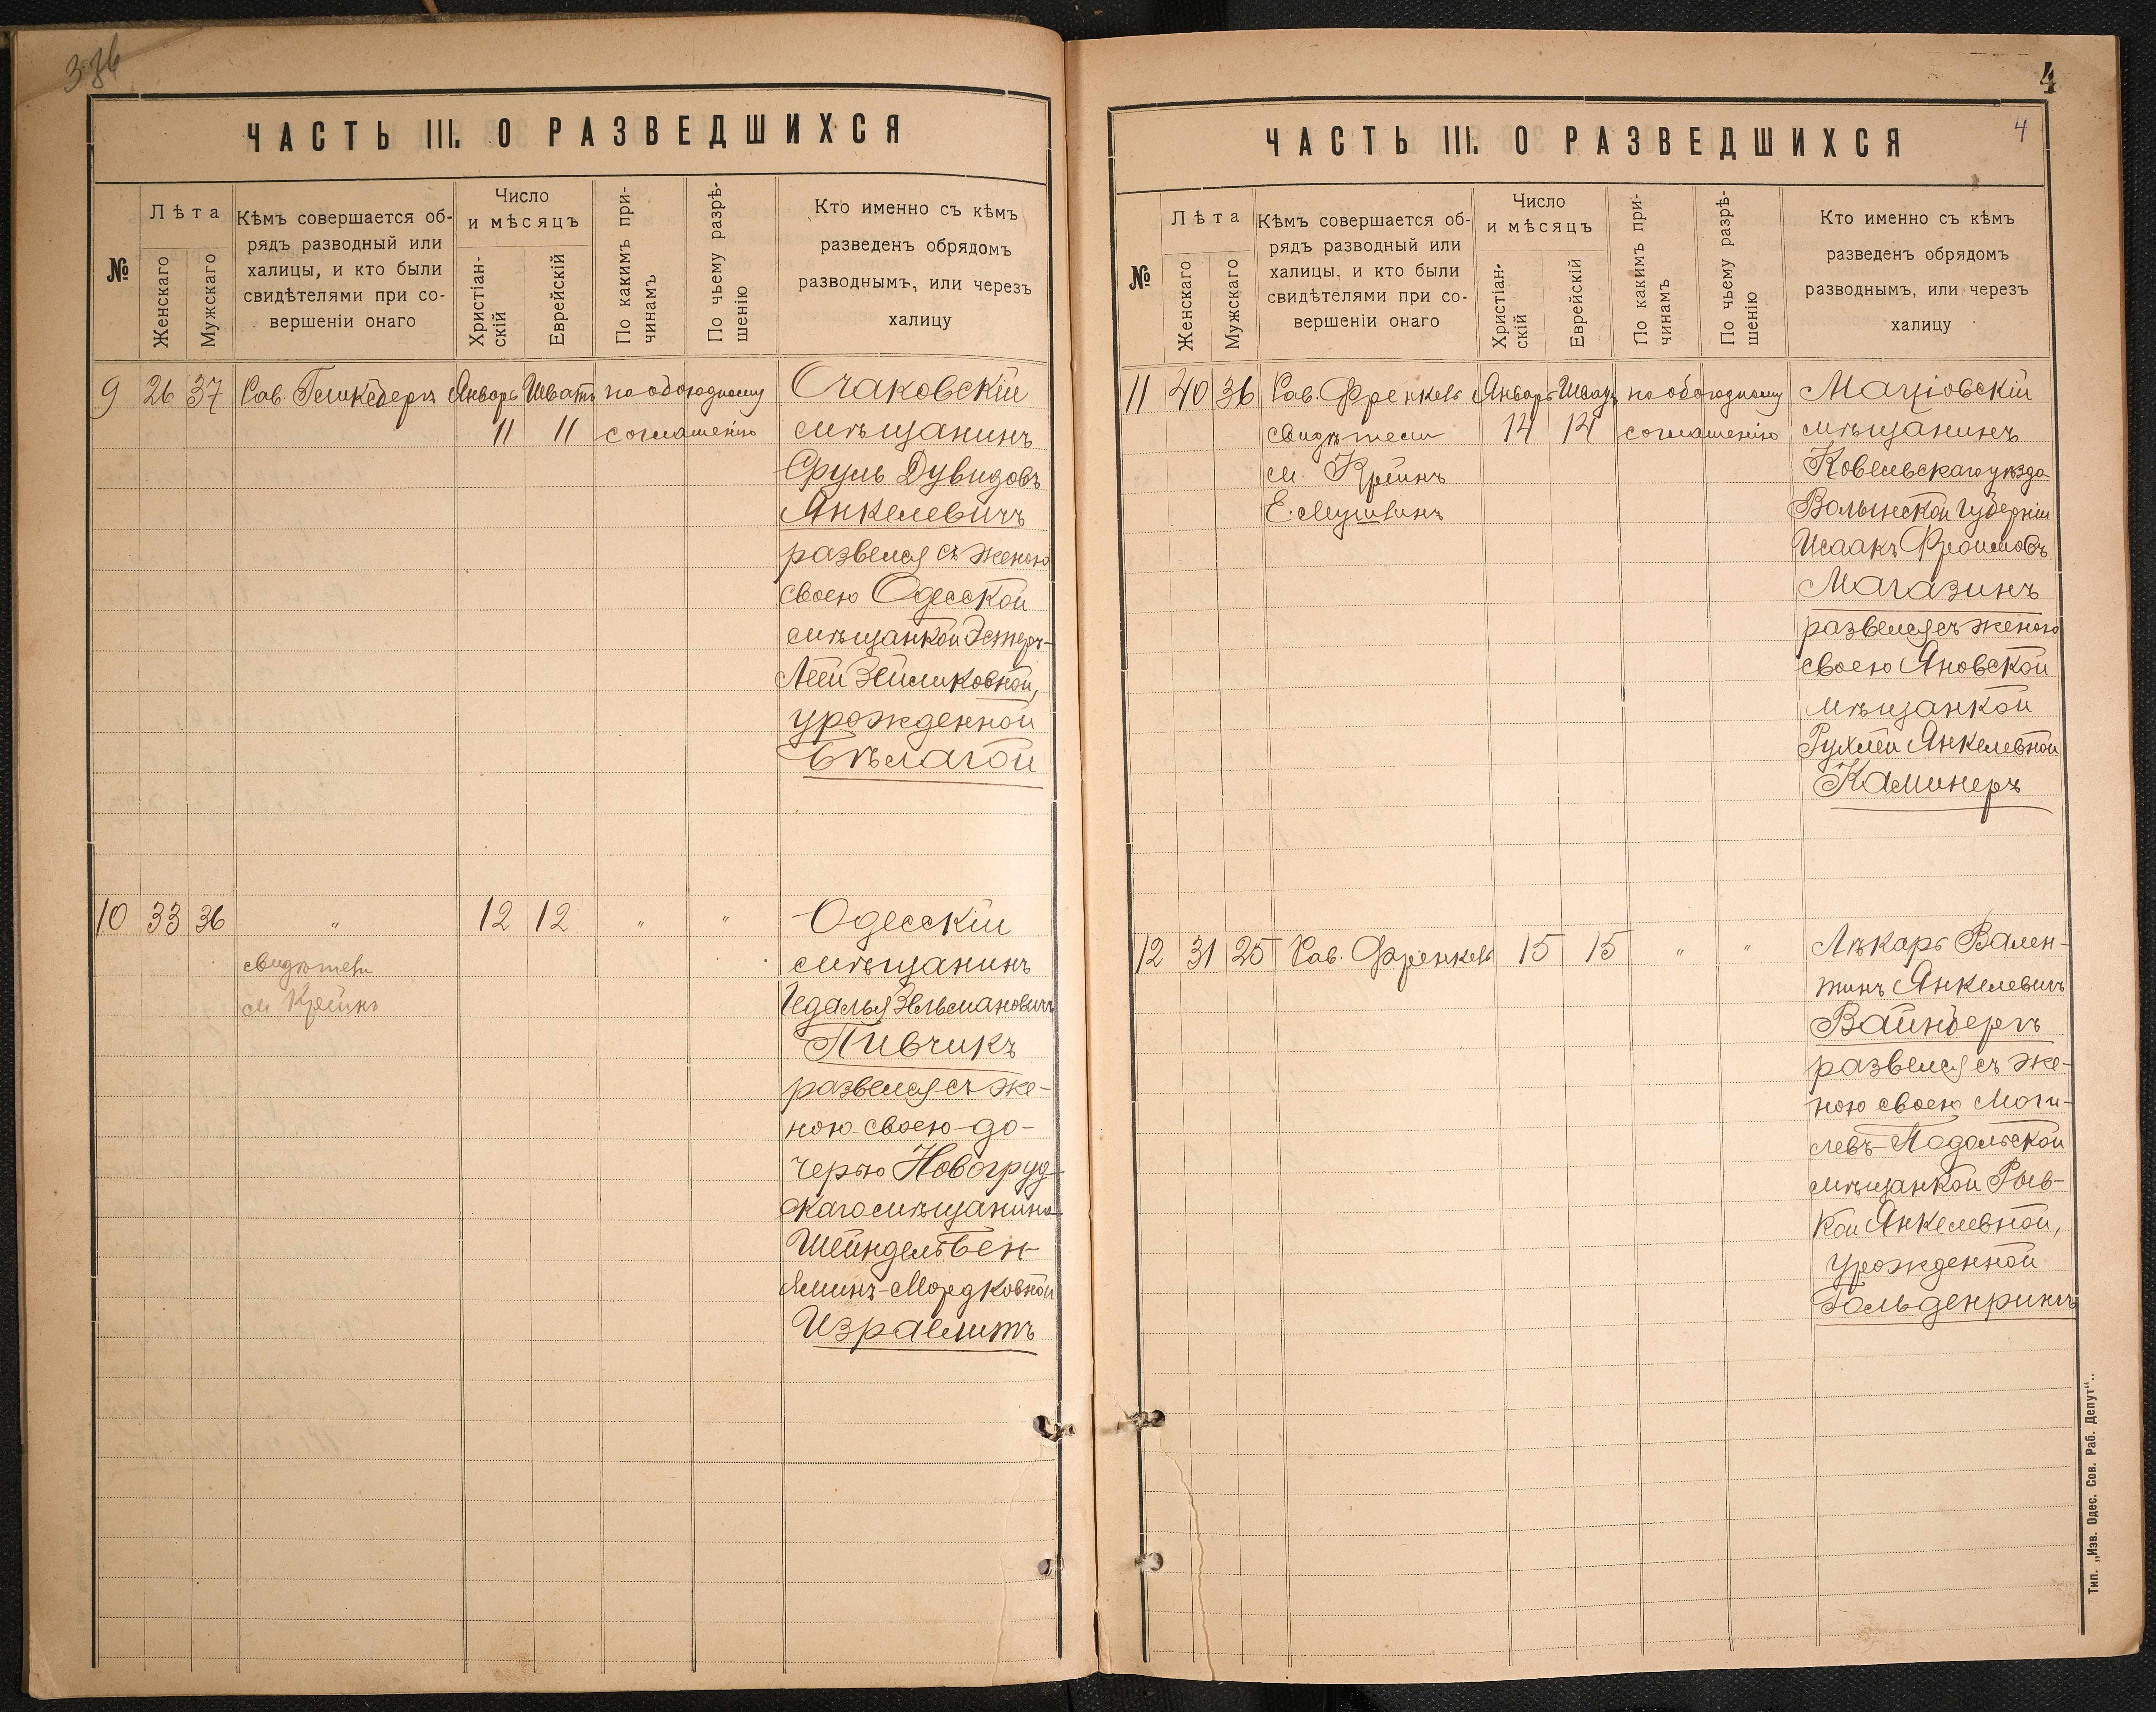 336
ЧАСТЬ III. О РАЗВЕДШИХСЯ
№
Лѣта
Женскаго
Мужскаго
Кѣмъ совершается об-
рядъ разводный или
халицы, и кто были
свидѣтелями при со-
вершеніи онаго
Число
и мѣсяцъ
Христіан-
скій
Еврейскій
По какимъ при-
чинамъ
По чьему разрѣ-
шенію
Кто именно съ кѣмъ
разведенъ обрядомъ
разводнымъ, или черезъ
халицу
9 26 37 Рав. Январь Шватъ по обоюдному Очаковскій
11 11 соглашенію мѣщанинъ
Сруль Дувидовъ
Янкелевичъ
развелся съ женою
своею Одесской
мѣщанкой Эстеръ-
Леей Зейликовной,
урожденной
Бѣлагой
10 33 36 " 12 12 " " Одесскій
свидѣтели мѣщанинъ
М Крейнъ Гедалья Зельмановичъ
Пивчикъ
развелся съ же-
ною своею до-
черью Новогруд-
скаго мѣщанина
Шейндель Бен-
яминъ-Мордковной
Израелитъ
4
4
ЧАСТЬ III. О РАЗВЕДШИХСЯ
№
Лѣта
Женскаго
Мужскаго
Кѣмъ совершается об-
рядъ разводный или
халицы, и кто были
свидѣтелями при со-
вершеніи онаго
Число
и мѣсяцъ
Христіан-
скій
Еврейскій
По какимъ при-
чинамъ
По чьему разрѣ-
шенію
Кто именно съ кѣмъ
разведенъ обрядомъ
разводнымъ, или черезъ
халицу
11 40 36 Рав. Френкель Январь Шватъ по обоюдному Маціовскій
свидѣтели 14 14 соглашенію мѣщанинъ
М. Крейнъ Ковельскаго уѣзда
Е. Волынской губерніи
Исаакъ Фроимовъ
Магазинъ
развелся съ женою
своею Яновской
мѣщанкой
Рухлей Янкелевной
Каминеръ
12 31 25 Рав. Френкель 15 15 " " Лѣкарь Вален-
тинъ Янкелевичъ
Вайнбергъ
развелся съ же-
ною своею Моги-
левъ-Подольской
мѣщанкой Рыв-
кой Янкелевной,
урожденной
Гольденрингъ
Тип. „Изв. Одес. Сов. Раб. Депут“..